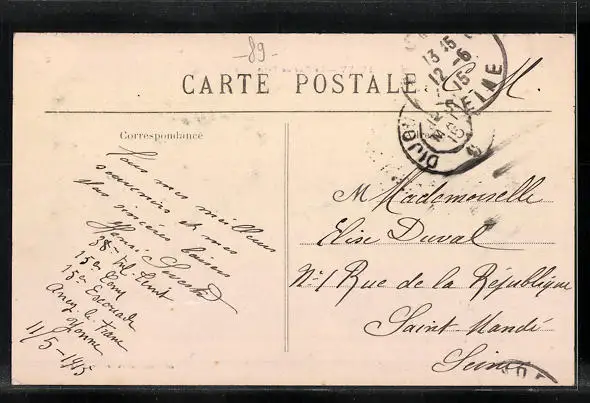 -89-
CARTE POSTALE. F. M.
13 45
12-5
15
SEINE
DIJON
Correspondance
Tous mes meilleurs
souvenirs et mes
plus sincères baisers
Henri
38e
15e Comp
15e Escouade
Ancy-le-Franc
Yonne
11/5-1915
M Mademoiselle
Elise Duval
No 1 Rue de la République
Saint Mandé
Seine